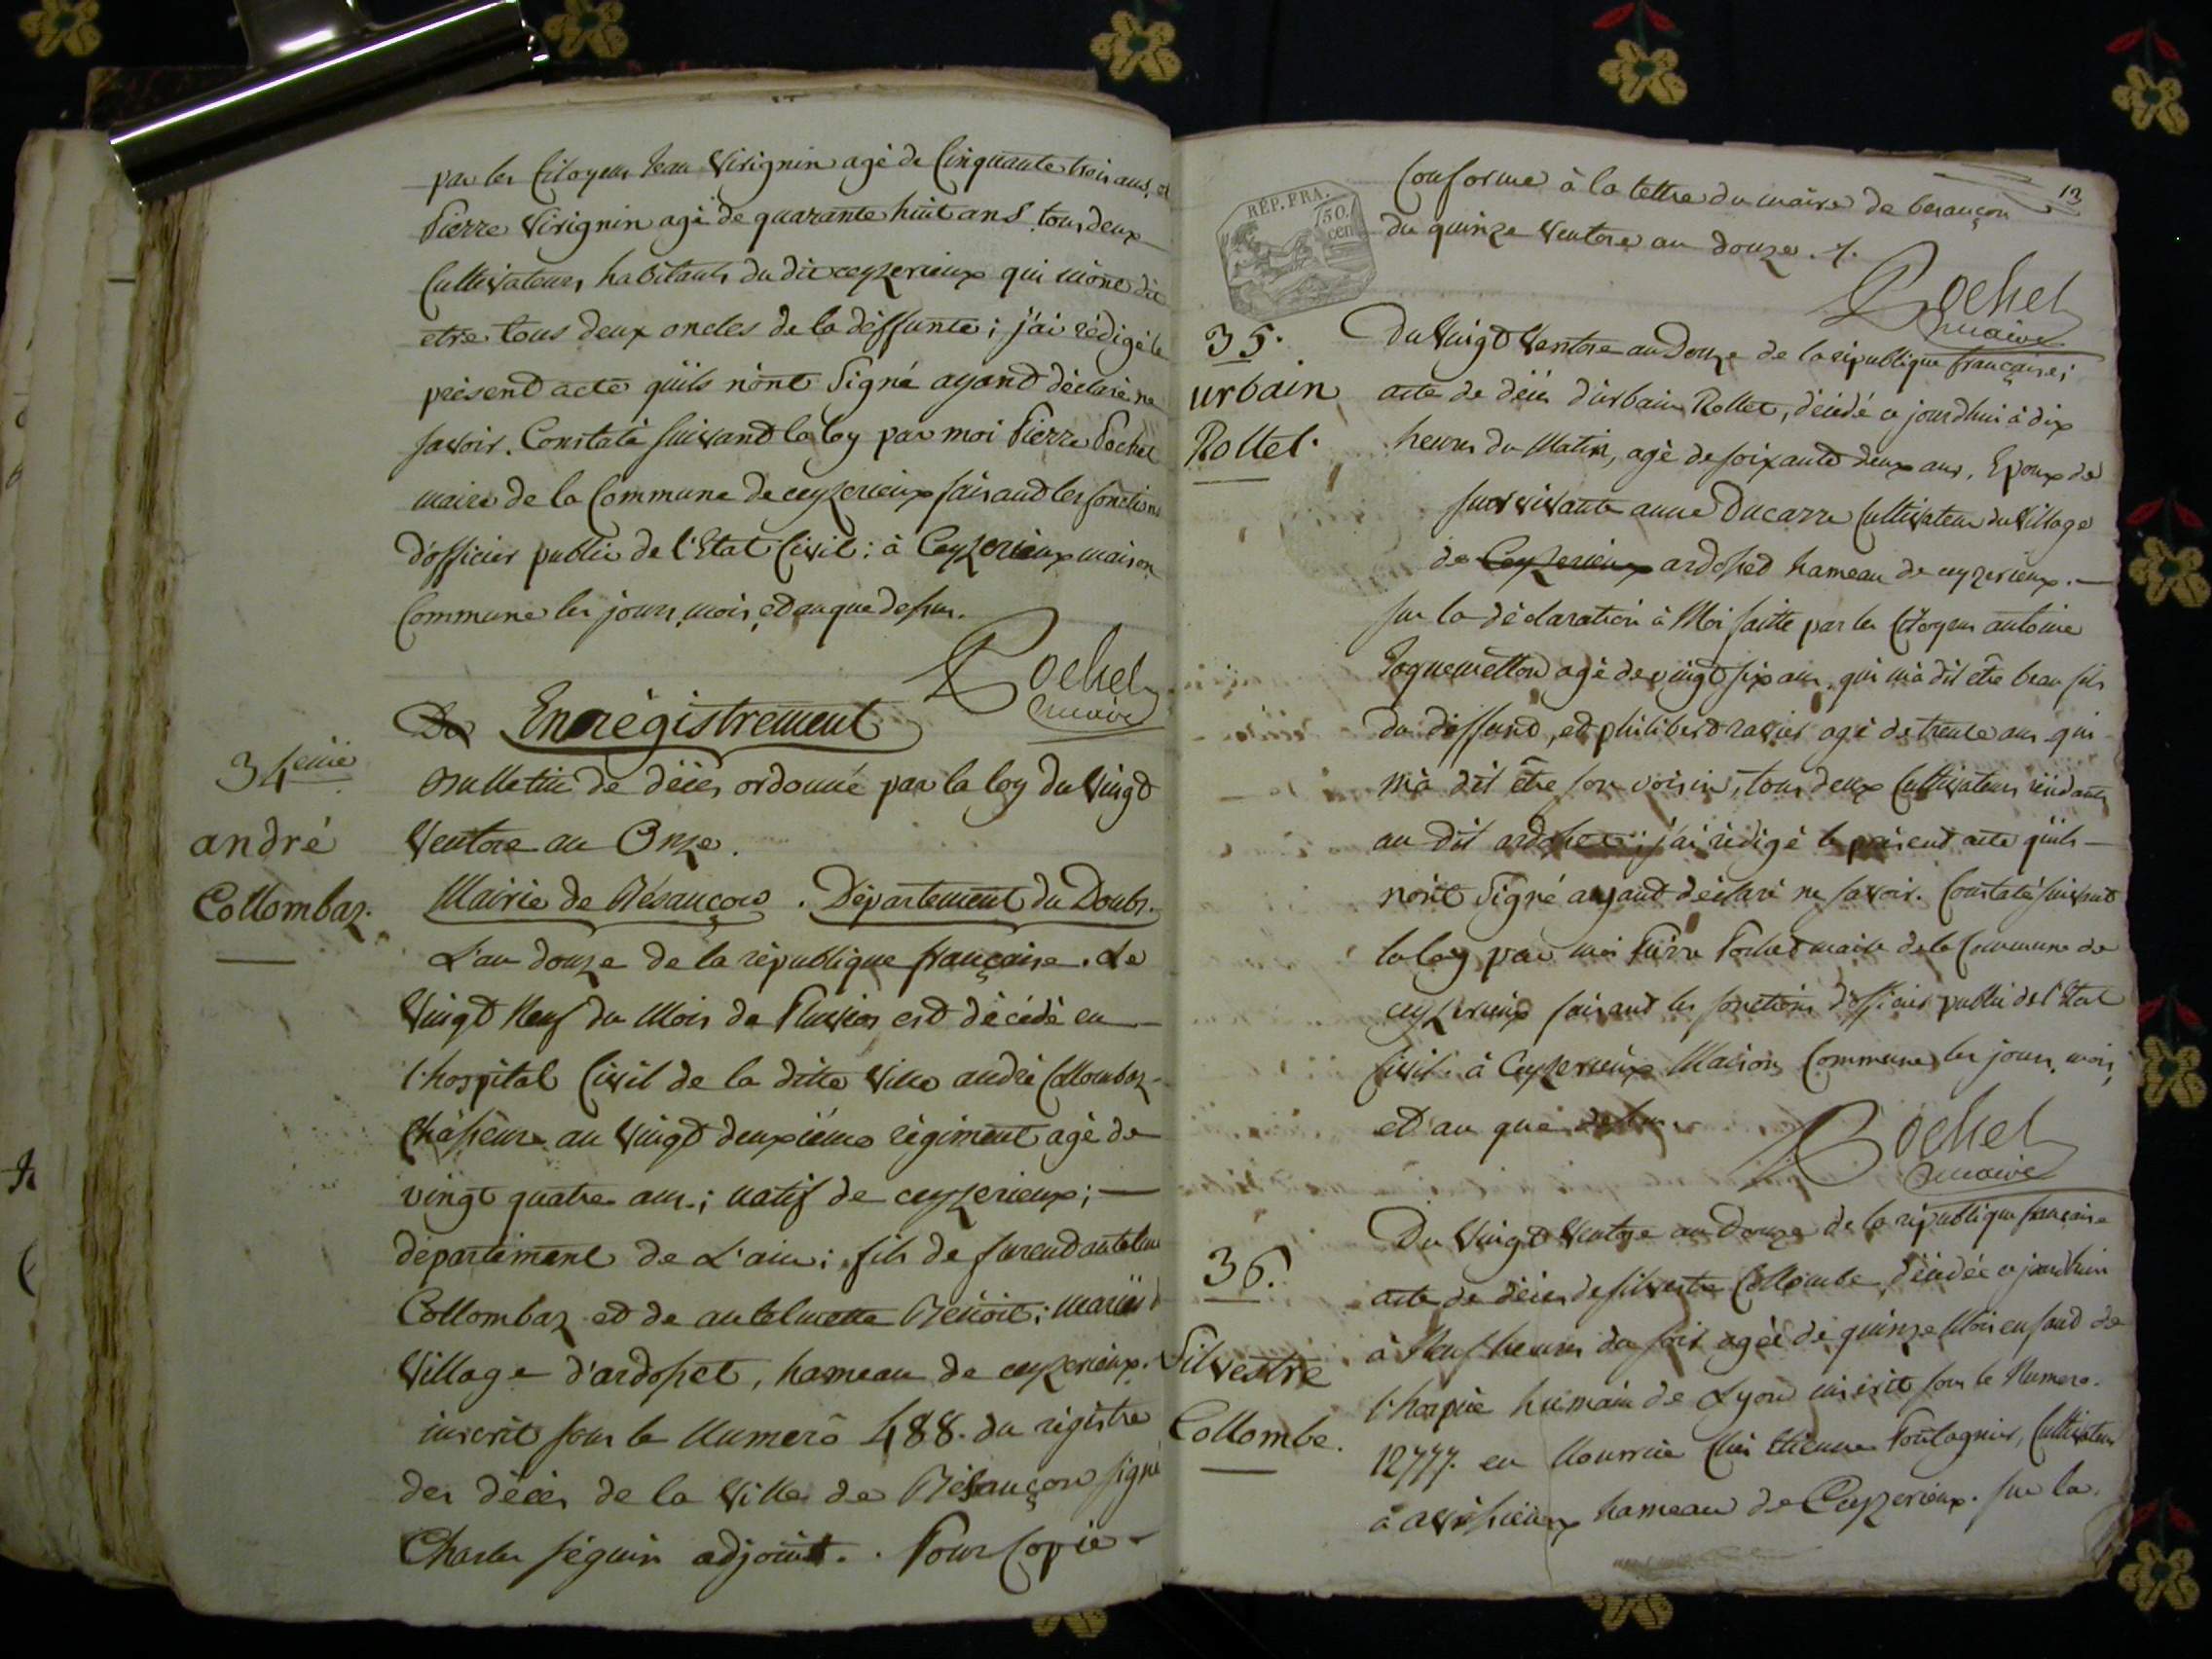 par les Citoyens Jean Virignin agé de Cinquante trois ans, et
Pierre Virignin agé de quarante huit ans tous deux
Cultivateurs habitants du dit ceyzerieux qui m'ont dit
etre tous deux oncles de la déffunte ; j'ai rédigé le
présent acte qu'ils n'ont Signé ayant déclaré ne
savoir. Constaté suivant la loy par moi Pierre Pochet
maire de la Commune de ceyzerieux faisant les fonctions
d'officier public de l'Etat Civil : à Ceyzerieux maison
Commune les jours, mois, et an que dessus.
Pochet
maire
34eme
andré
Collombaz.
Du Enrégistrement
Bulletin de décès ordonné par la loy du Vingt
Ventose an Onze.
Mairie de Bésançon. Département du Doubs.
L'an douze de la république française. Le
Vingt Neuf du Mois de Pluviose est décédé en
l'hospital Civil de la ditte Ville andré Collombaz
Chasseur au Vingt deuxième régiment agé de
vingt quatre ans ; natif de ceyzerieux ;
département de L'ain ; fils de
Collombaz et de antelmette Benoit ; mariés
Village d'ardosset, hameau de ceyzerieux.
inscrit sous le Numero 488. du régistre
des décès de la Ville de Bésançon signé
Charles séguin adjoint. . Pour Copie
12
RÉP. FRA.
50.
cen
Conforme à la lettre du maire de besançon
du quinze Ventose an douze. /.
Pochet
maire
35.
urbain
Rollet.
Du Vingt Ventose an Douze de la république française ;
acte de décès d'urbain Rollet, décédé ce jourd'hui à dix
heures du Matin, agé de soixante deux ans, Epoux de
survivante anne Ducarre Cultivateur du Village
de Ceyzerieux ardosset hameau de ceyzerieux.
sur la déclaration à Moi faitte par les Citoyens antoine
agé de vingt six ans, qui m'a dit être beau fils
du déffunt, et philibert ravier agé de trente ans qui
m'a dit être son voisin, tous deux Cultivateurs résidants
au dit ardosset ; j'ai rédigé le présent acte qu'ils
n'ont Signé ayant déclaré ne savoir. Constaté suivant
la loy par moi Pierre Pochet maire de la Commune de
ceyzerieux faisant les fonctions d'officier public de l'Etat
Civil : à Ceyzerieux Maison Commune les jours, mois,
et an que dessus
Pochet
maire
36.
Silvestre
Collombe.
Du Vingt Ventose an Douze de la république française
acte de décès de silvestre Collombe, décédée ce jourd'hui
à Neuf heures du soir agée de quinze Mois enfant de
l'hospice humain de Lyon inscrit sous le Numero.
12777. en Nourrice chez Etienne Cultivateur
à hameau de Ceyzerieux. sur la